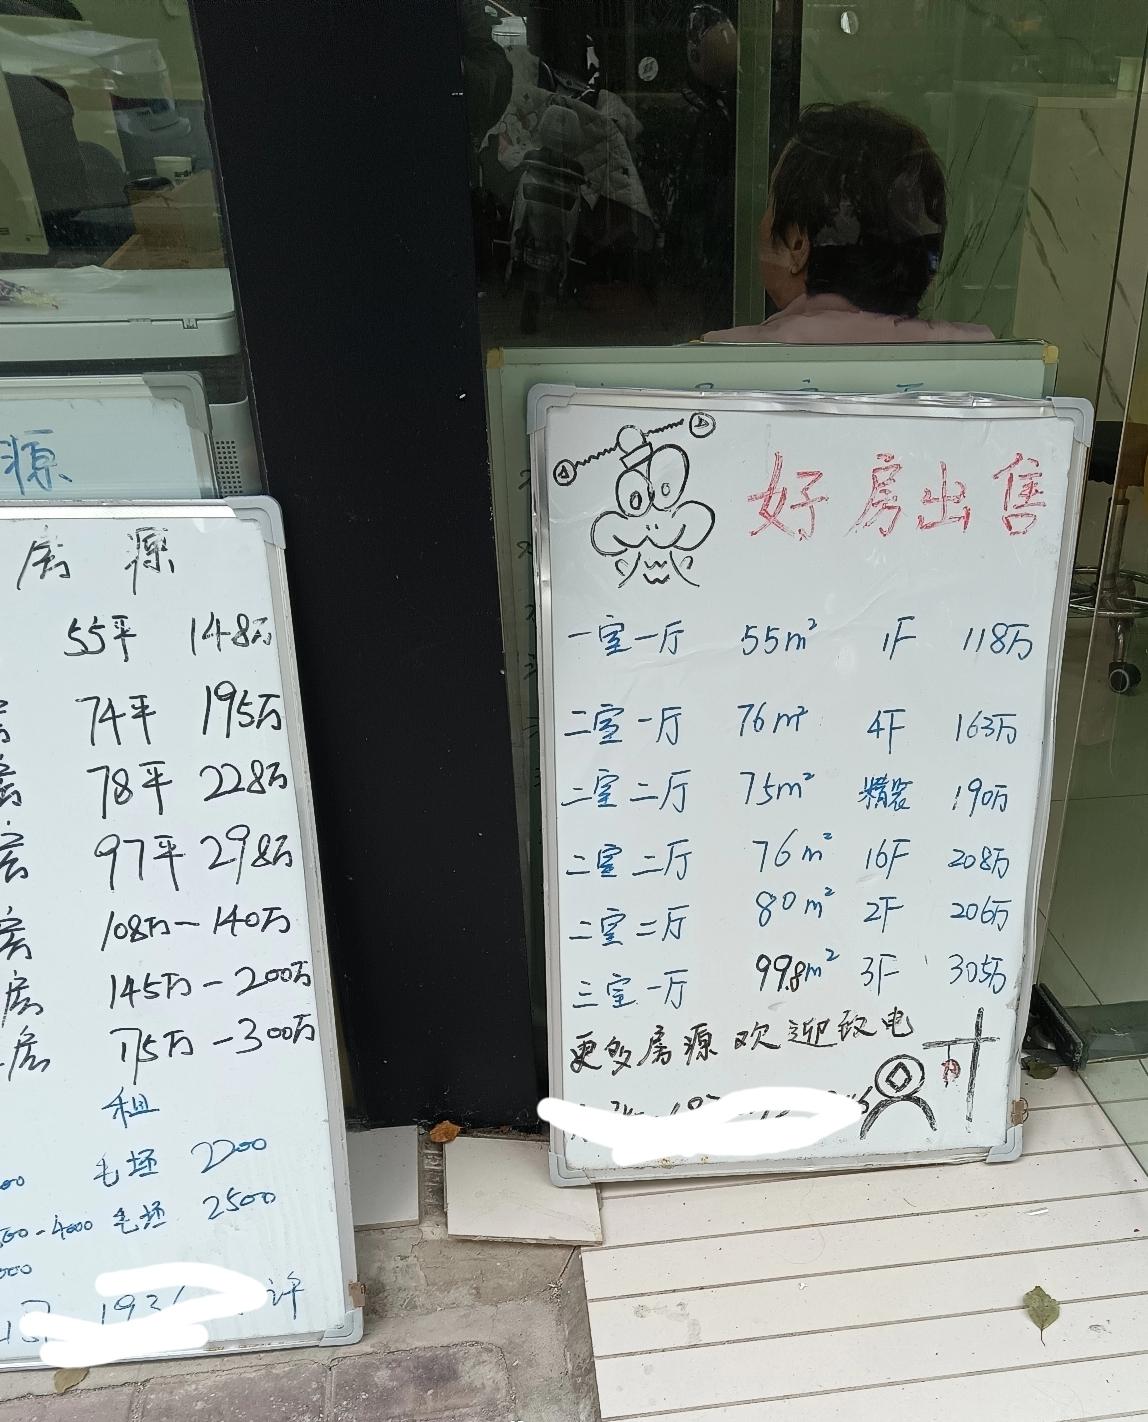 源
房 源
55平 148万
74平 195万
78平 228万
97平 298万
房 108万-140万
房 145万-200万
房 175万-300万
租
毛坯 2200
-4000 毛坯 2500
193
许
好房出售
一室一厅 55m² 1F 118万
二室一厅 76m² 4F 163万
二室二厅 75m² 精装 190万
二室二厅 76m² 16F 208万
二室二厅 80m² 2F 206万
三室一厅 99.8m² 3F 305万
更多房源欢迎致电